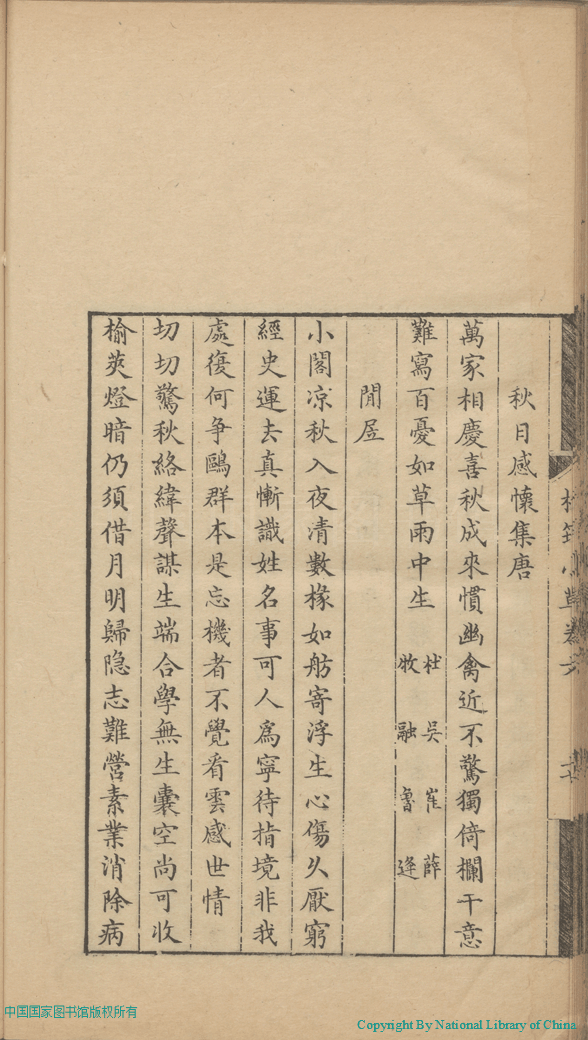 秋日感懷集唐
萬家相慶喜秋成來慣幽禽近不驚獨倚欄干意
難寫百憂如草雨中生
杜吳崔薛
牧融魯逢
閒居
小閣凉秋入夜清數椽如舫寄浮生心傷久厭窮
經史運去真慚識姓名事可人為寧待揹境非我
處復何争鷗群本是忘機者不覺看雲感世情
切切驚秋絡緯聲謀生端合學無生囊空尚可收
榆莢燈暗仍須借月明歸隐志難營素業消除病
中国国家图书馆版权所有
Copyright By National Library of China